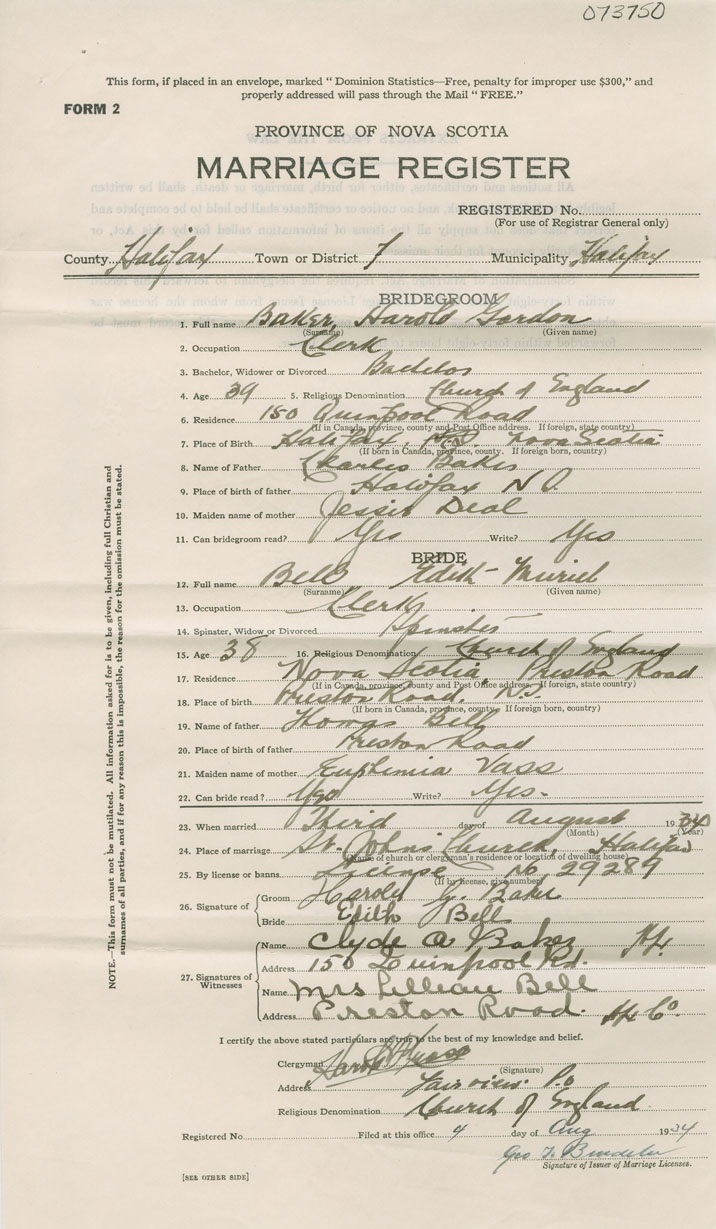 073750
This form, if placed in an envelope, marked “ Dominion Statistics—Free, penalty for improper use $300,” and
properly addressed will pass through the Mail “ FREE.”
FORM 2
PROVINCE OF NOVA SCOTIA
MARRIAGE REGISTER
REGISTERED No.
(For use of Registrar General only)
County Halifax Town or District 7 Municipality Halifax
BRIDEGROOM
1. Full name Baker, Harold Gordon
(Surname) (Given name)
2. Occupation Clerk
3. Bachelor, Widower or Divorced Bachelor
4. Age 39 5. Religious Denomination Church of England
6. Residence 150 Quinpool Road
(If in Canada, province, county and Post Office address. If foreign, state country)
7. Place of Birth Halifax, N.S. Nova Scotia
(If born in Canada, province, county. If foreign born, country)
8. Name of Father Charles Baker
9. Place of birth of father Halifax N.S.
10. Maiden name of mother Jessie Deal
11. Can bridegroom read? Yes Write? Yes
BRIDE
12. Full name Bell Edith Muriel
(Surname) (Given name)
13. Occupation Clerk
14. Spinster, Widow or Divorced Spinster
15. Age 38 16. Religious Denomination Church of England
17. Residence Nova Scotia, Preston Road
(If in Canada, province, county and Post Office address. If foreign, state country)
18. Place of birth Preston Road, N.S.
(If born in Canada, province, county. If foreign born, country)
19. Name of father Thomas Bell
20. Place of birth of father Preston Road
21. Maiden name of mother Euphemia Vass
22. Can bride read? Yes Write? Yes.
23. When married Third day of August 1934
(Month) (Year)
24. Place of marriage St. Johns Church, Halifax
(Name of church or clergyman's residence or location of dwelling house)
25. By license or banns License No. 29289
(If by license, give number)
26. Signature of
Groom Harold G. Baker
Bride Edith Bell
27. Signatures of Witnesses
Name Clyde A Baker Hx.
Address 150 Quinpool Rd.
Name Mrs Lillian Bell
Address Preston Road. Hx Co.
I certify the above stated particulars are true to the best of my knowledge and belief.
Clergyman Harold
(Signature)
Address Fairview. P.O
Religious Denomination Church of England
Registered No. Filed at this office 4 day of Aug 1934
Geo
Signature of Issuer of Marriage Licenses.
[SEE OTHER SIDE]
NOTE.—This form must not be mutilated. All information asked for is to be given, including full Christian and
surnames of all parties, and if for any reason this is impossible, the reason for the omission must be stated.